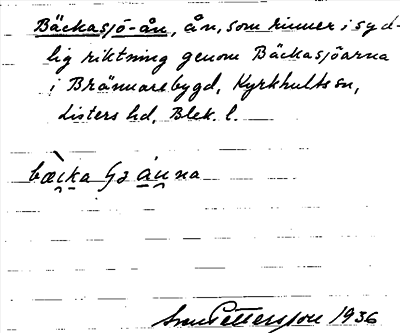 Bäckasjö-ån, ån, som rinner i syd-
lig riktning genom Bäckasjöarna
i Brännarebygd, Kyrkhults sn,
Listers hd, Blek. l.
Sven Pettersson 1936